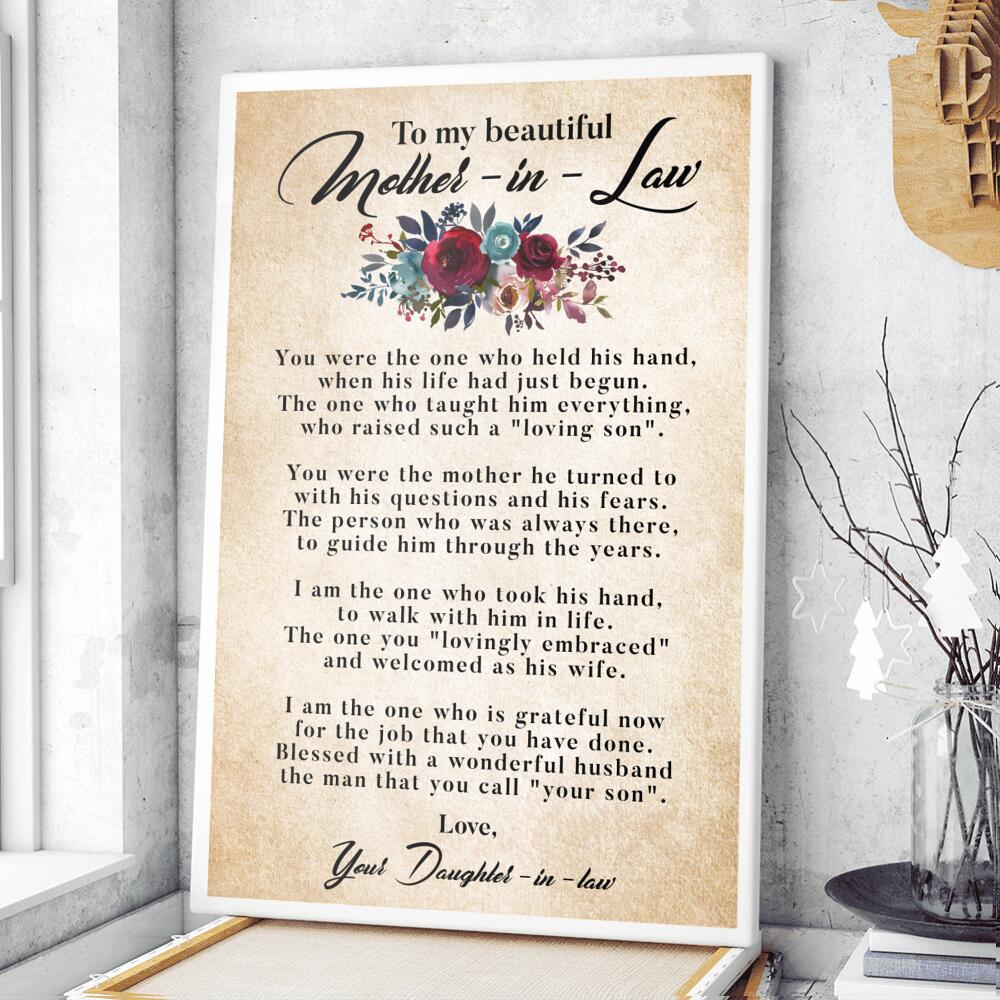 To my beautiful
Mother - in - Law
You were the one who held his hand,
when his life had just begun.
The one who taught him everything,
who raised such a "loving son".
You were the mother he turned to
with his questions and his fears.
The person who was always there,
to guide him through the years.
I am the one who took his hand,
to walk with him in life.
The one you "lovingly embraced"
and welcomed as his wife.
I am the one who is grateful now
for the job that you have done.
Blessed with a wonderful husband
the man that you call "your son".
Love,
Your Daughter - in - law